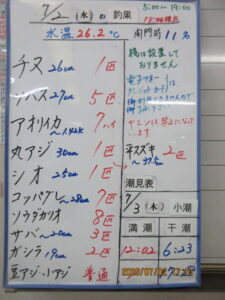 7/2 (水) の 釣果
5:00〜19:00
18:00現在
水温 26.2℃
開門時 11名
チヌ 26cm 1匹
ツバス 27cm 5匹
アオリイカ 7ハイ
丸アジ 30cm 1匹
シオ 25cm 1匹
コッパグレ 〜28cm 7匹
ソウダガツオ 8匹
サバ 〜20cm 3匹
ガシラ 19cm 2匹
豆アジ・小アジ 普通
桟は設置して
おりません
電子マネー
クレジットカード
ヤエンは禁止になって
います
平スズキ 2匹
〜37.5cm
潮見表
7/3 (木) 小潮
満潮 干潮
12:02 6:23